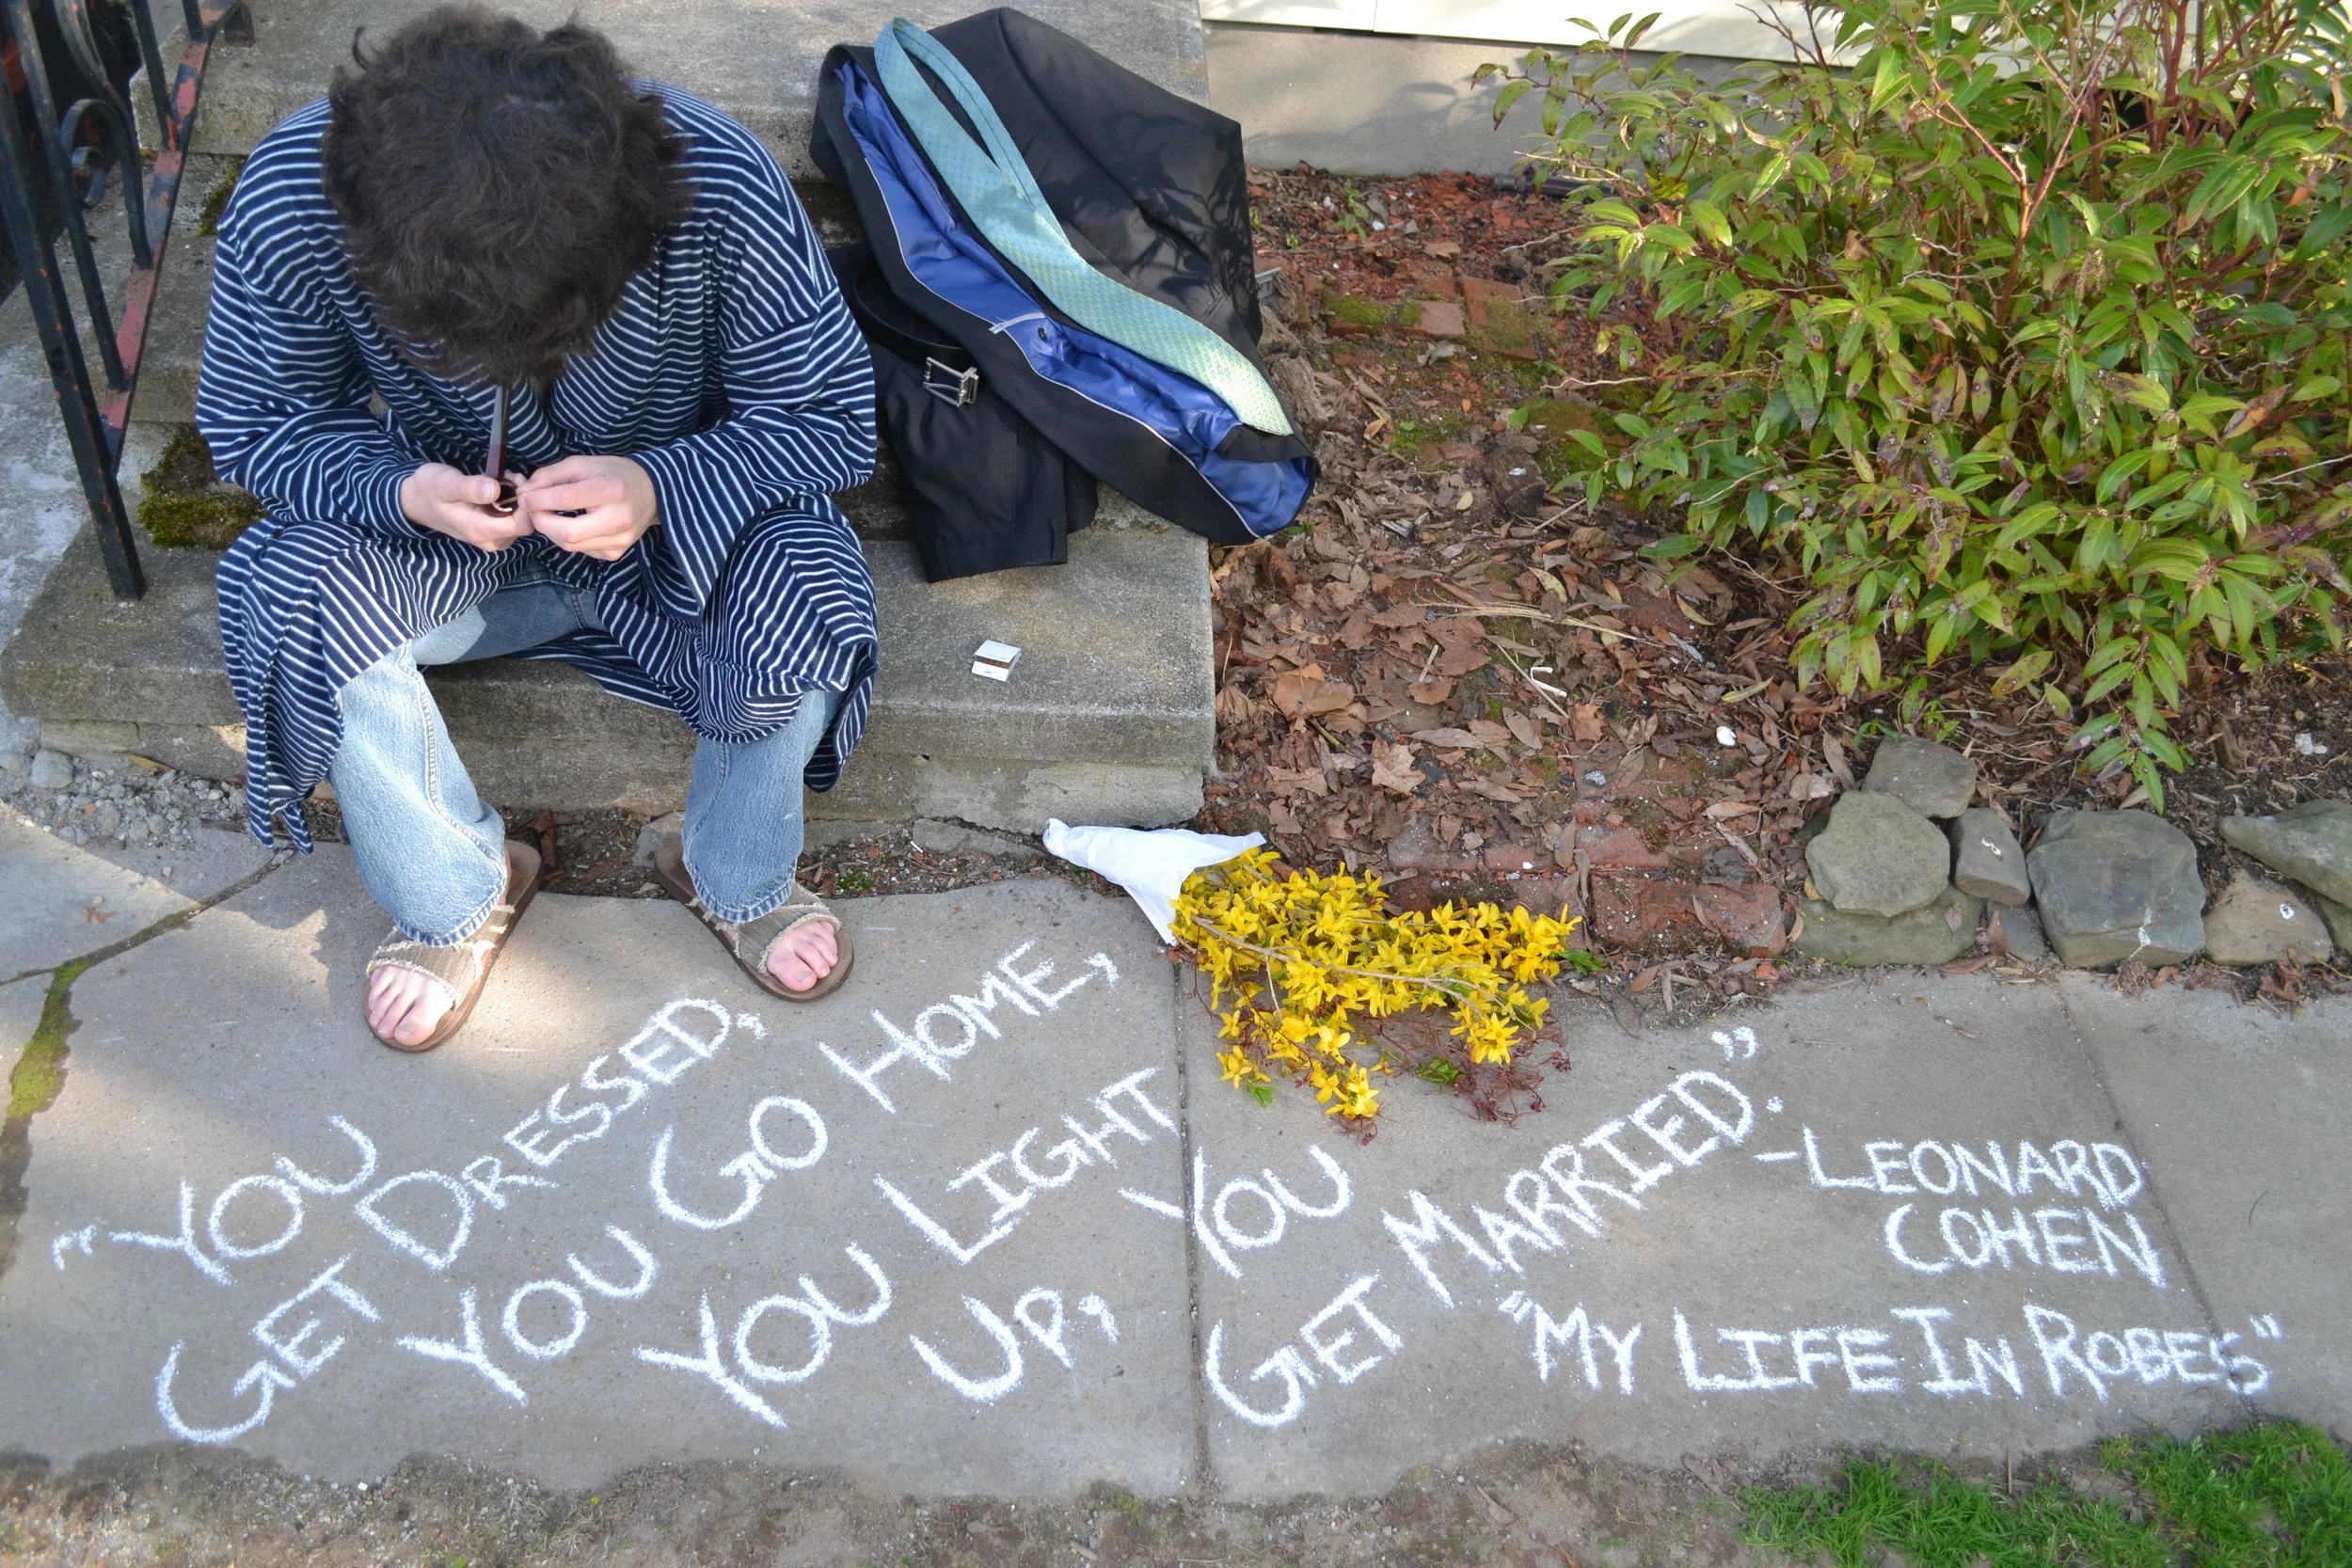 "YOU
GET DRESSED,
YOU GO HOME,
YOU LIGHT
UP, YOU
GET MARRIED".
-LEONARD
COHEN
"MY LIFE IN ROBES"